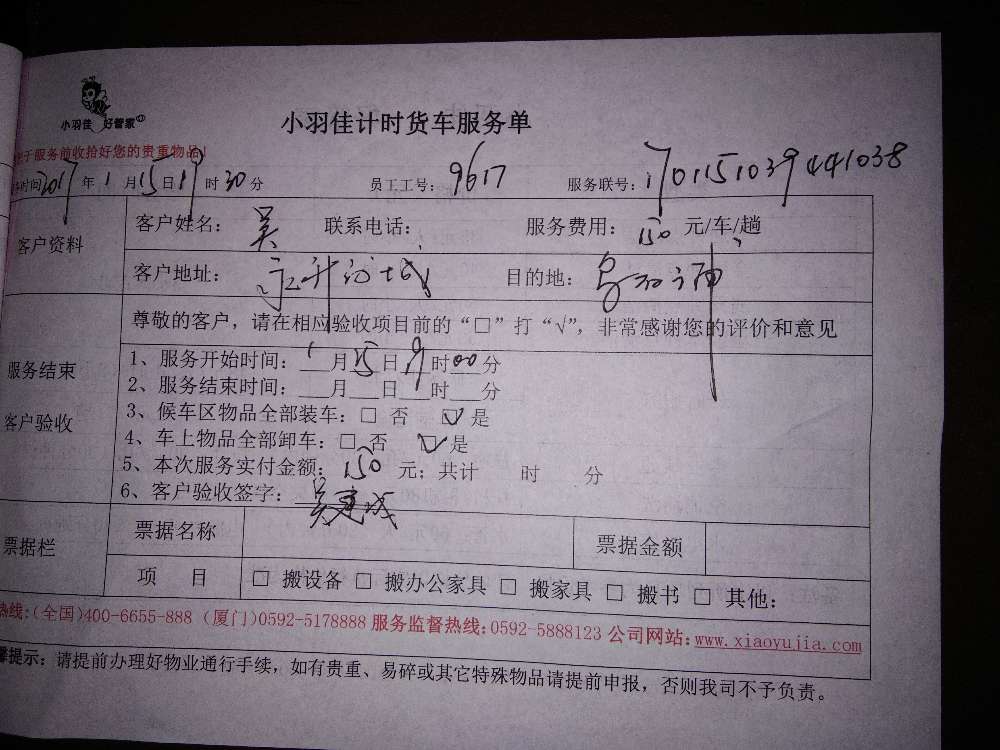 小羽佳 好管家
小羽佳计时货车服务单
于服务前收拾好您的贵重物品!
时间2017年1月15日19时30分 员工工号:9617 服务联号:1701151039441038
客户资料
客户姓名:吴 联系电话: 服务费用:150元/车/趟
客户地址:永升 城 目的地:乌石浦
尊敬的客户,请在相应验收项目前的“□”打“√”,非常感谢您的评价和意见
服务结束
客户验收
1、服务开始时间:1月15日19时00分
2、服务结束时间:___月___日___时___分
3、候车区物品全部装车:□ 否 ☑ 是
4、车上物品全部卸车:□ 否 ☑ 是
5、本次服务实付金额:150元;共计 时 分
6、客户验收签字:吴建成
票据栏
票据名称 票据金额
项 目 □ 搬设备 □ 搬办公家具 □ 搬家具 □ 搬书 □ 其他:
热线:(全国)400-6655-888 (厦门)0592-5178888 服务监督热线:0592-5888123 公司网站:www.xiaoyujia.com
馨提示:请提前办理好物业通行手续,如有贵重、易碎或其它特殊物品请提前申报,否则我司不予负责。